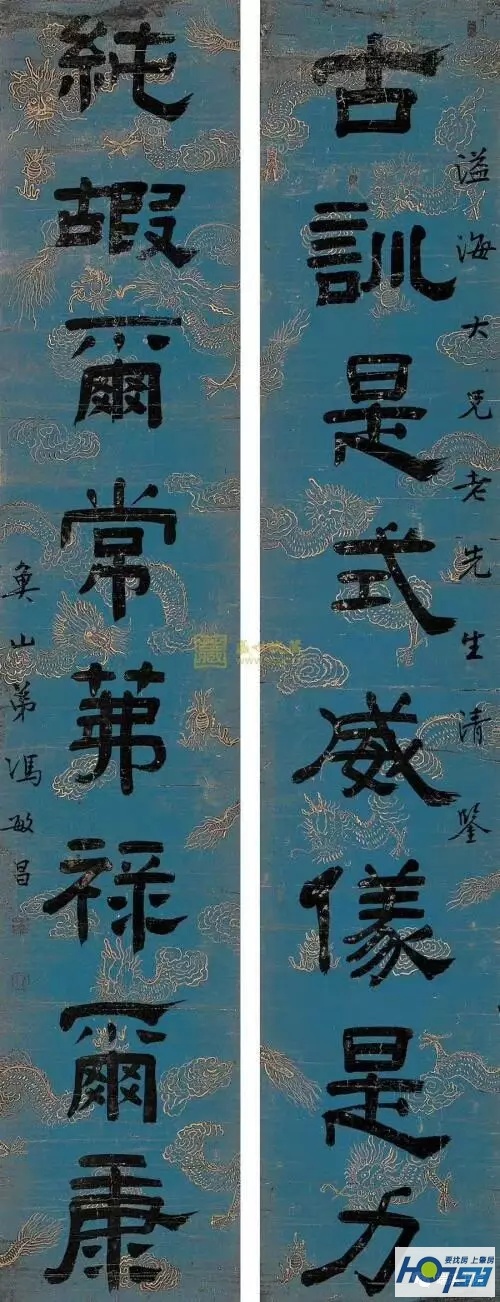 溢海大兄老先生清鑒
古訓是式威儀是力
純嘏爾常茀禄爾康
魚山弟馮敏昌
要找房 上肇房
HO758